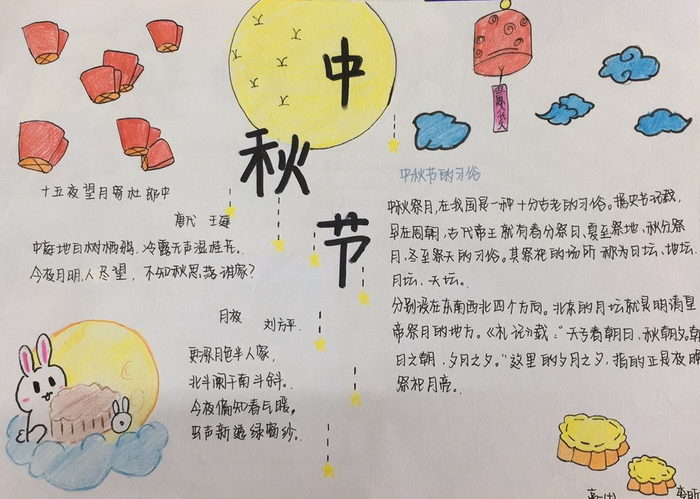 中
秋
节
十五夜望月寄杜郎中
唐代 王建
中庭地白树栖鸦，冷露无声湿桂花。
今夜月明人尽望，不知秋思落谁家？
月夜 刘方平
更深月色半人家，
北斗阑干南斗斜。
今夜偏知春气暖，
虫声新透绿窗纱。
中秋节的习俗
中秋祭月，在我国是一种十分古老的习俗。据史书记载，
早在周朝，古代帝王就有春分祭日、夏至祭地、秋分祭
月、冬至祭天的习俗。其祭祀的场所称为日坛、地坛、
月坛、天坛。
分别设在东南西北四个方向。北京的月坛就是明清皇
帝祭月的地方。《礼记》载："天子春朝日，秋朝夕。朝
日之朝，夕月之夕。"这里的夕月之夕，指的正是夜晚
祭祀月亮。